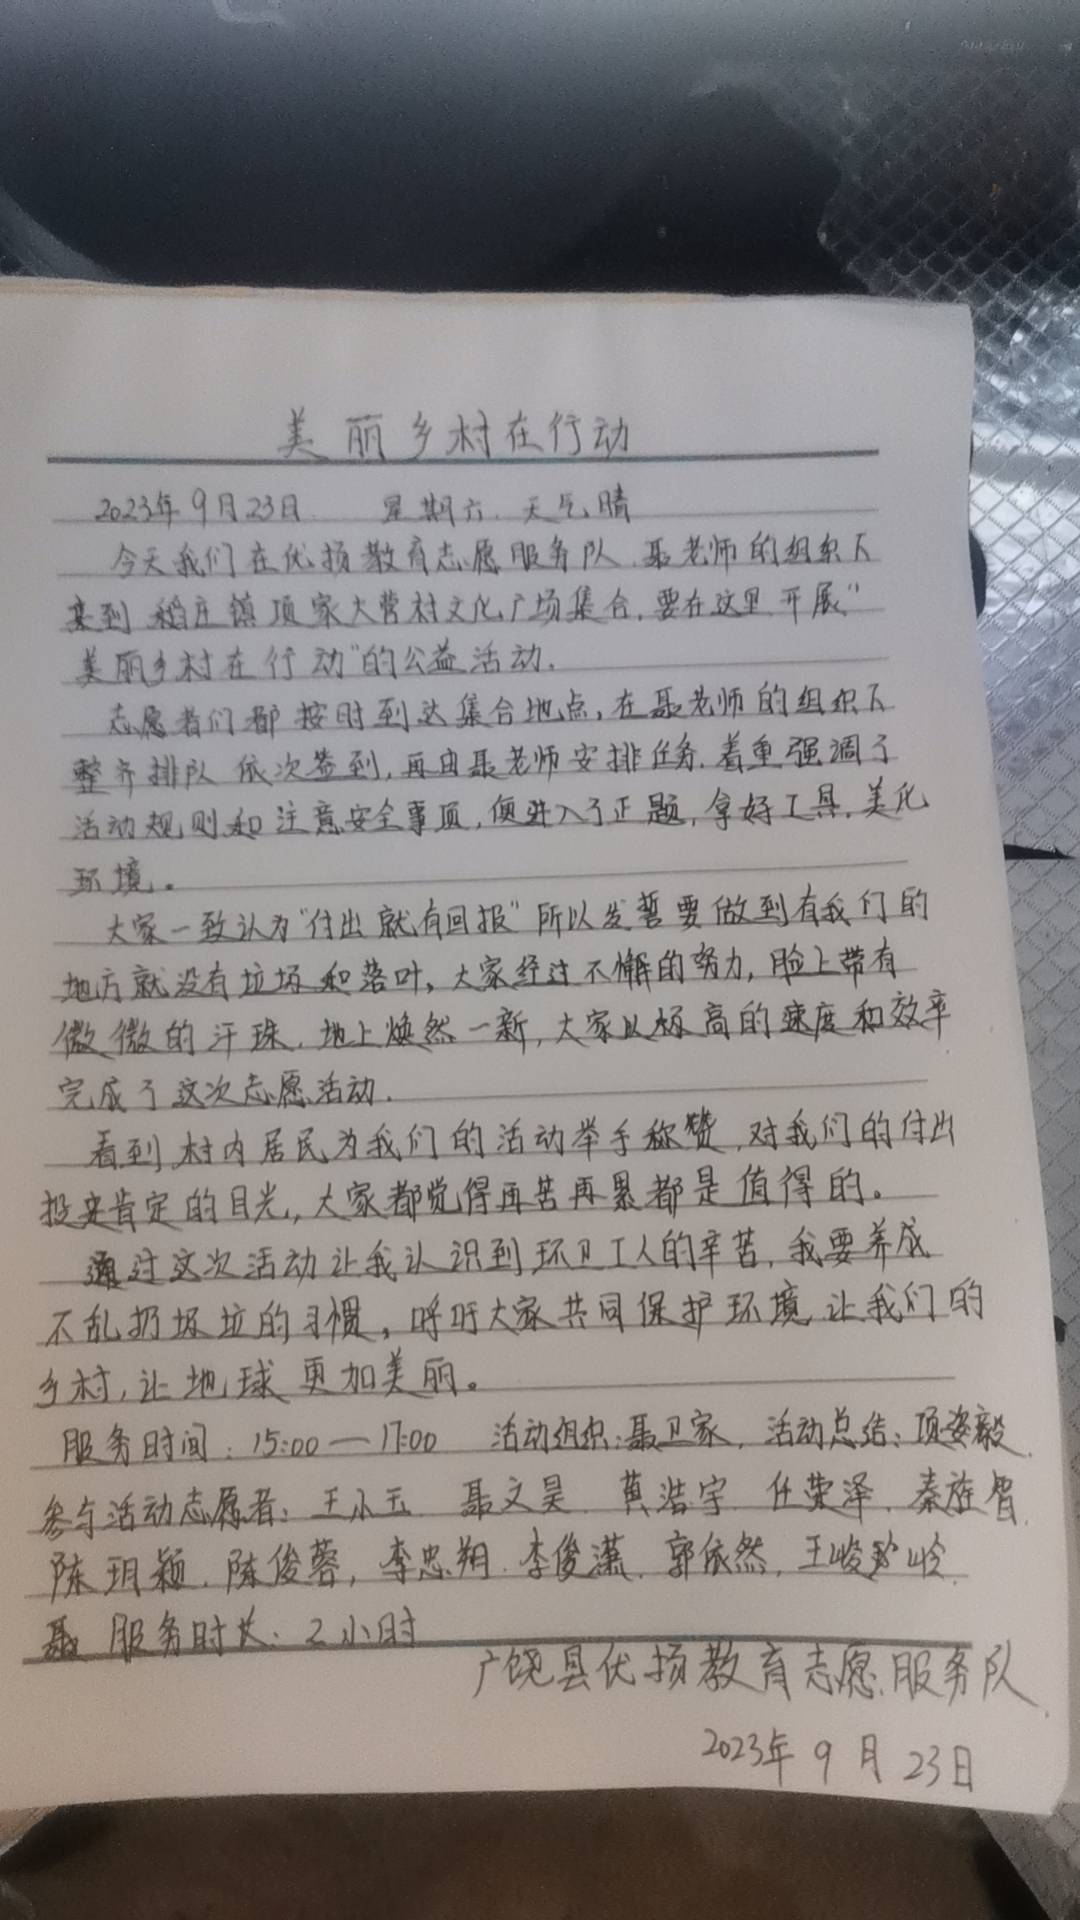 美丽乡村在行动
2023年9月23日 星期六. 天气晴
今天我们在优扬教育志愿服务队.聂老师的组织下
来到 稻庄镇项家大营村文化广场集合,要在这里开展"
美丽乡村在行动"的公益活动.
志愿者们都按时到达集合地点,在聂老师的组织下
整齐排队依次签到,再由聂老师安排任务.着重强调了
活动规则和注意安全事项,便进入了正题,拿好工具,美化
环境。
大家一致认为"付出就有回报"所以发誓要做到有我们的
地方就没有垃圾和落叶,大家经过不懈的努力,脸上带有
微微的汗珠.地上焕然一新,大家以极高的速度和效率
完成了这次志愿活动.
看到村内居民为我们的活动举手称赞,对我们的付出
投来肯定的目光,大家都觉得再苦再累都是值得的。
通过这次活动让我认识到环卫工人的辛苦,我要养成
不乱扔圾垃的习惯,呼吁大家共同保护环境让我们的
乡村,让地球更加美丽。
服务时间:15:00—17:00 活动组织:聂卫家. 活动总结:项姿毅.
参与活动志愿者:王小玉 聂文昊. 黄浩宇. 任荣泽. 秦旌智.
陈玥颖.陈俊蓉,李忠翔.李俊潇.郭依然,王峻岭.
服务时长:2小时
广饶县优扬教育志愿服务队.
2023年9月23日